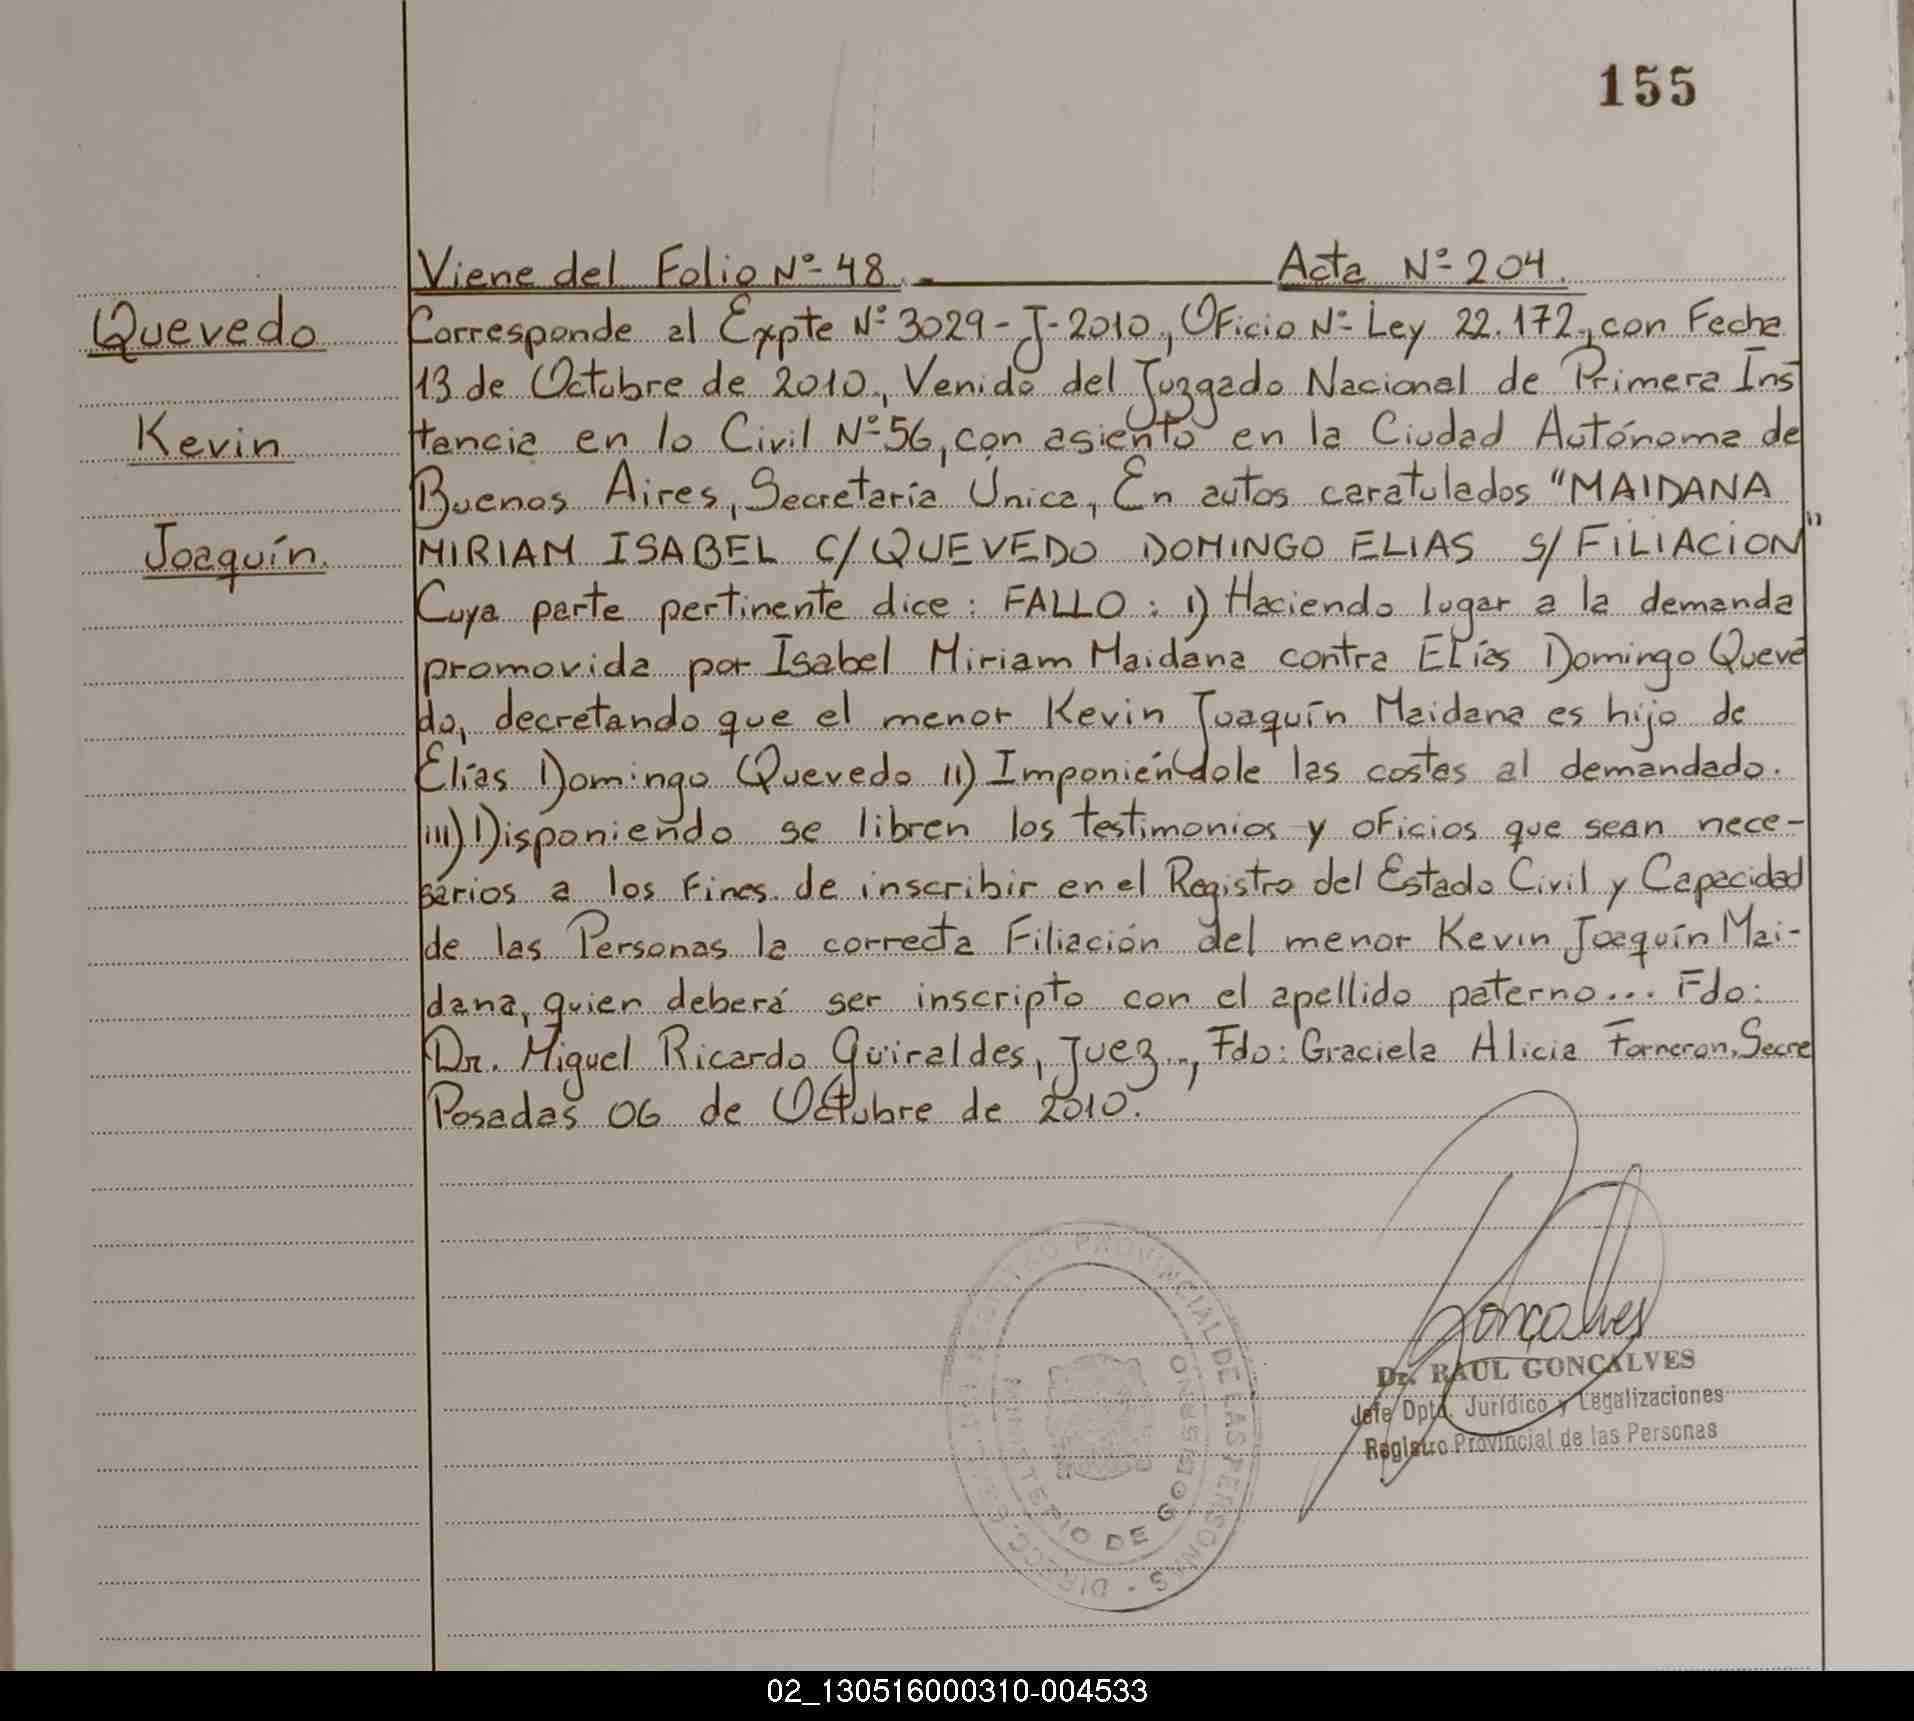 155
Viene del Folio Nº 48.- Acta Nº 204.
Quevedo
Kevin
Joaquín.
Corresponde al Expte Nº 3029-J-2010., Oficio Nº Ley 22.172., con Fecha
13 de Octubre de 2010., Venido del Juzgado Nacional de Primera Ins
tancia en lo Civil Nº 56, con asiento en la Ciudad Autónoma de
Buenos Aires, Secretaría Única, En autos caratulados "MAIDANA
MIRIAM ISABEL C/ QUEVEDO DOMINGO ELIAS S/ FILIACION"
Cuya parte pertinente dice: FALLO: I) Haciendo lugar a la demanda
promovida por Isabel Miriam Maidana contra Elías Domingo Queve
do, decretando que el menor Kevin Joaquín Maidana es hijo de
Elías Domingo Quevedo II) Imponiéndole las costas al demandado.
III) Disponiendo se libren los testimonios y oficios que sean nece-
sarios a los fines de inscribir en el Registro del Estado Civil y Capacidad
de las Personas la correcta Filiación del menor Kevin Joaquín Mai-
dana, quien deberá ser inscripto con el apellido paterno... Fdo:
Dr. Miguel Ricardo Güiraldes, Juez., Fdo: Graciela Alicia Forneron, Secre
Posadas 06 de Octubre de 2010.
REGISTRO PROVINCIAL DE LAS PERSONAS
MINISTERIO DE GOBIERNO
Goncalves
Dr. RAUL GONCALVES
Jefe Dpto. Jurídico y Legalizaciones
Registro Provincial de las Personas
02_130516000310-004533